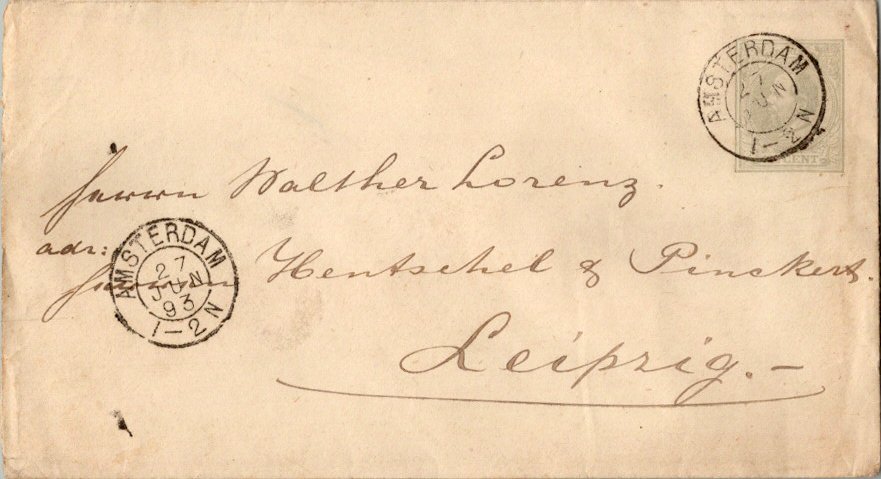 AMSTERDAM
27
JUN
1-2 N
CENT
Herrn Walther Lorenz.
adr:
Herren Hentschel & Pinckert.
Leipzig.-
AMSTERDAM
27
JUN
93
1-2 N